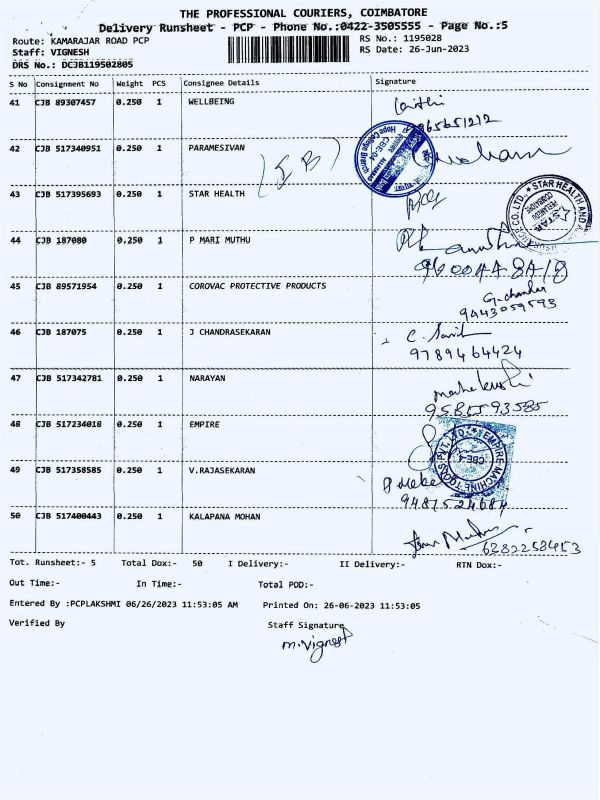 THE PROFESSIONAL COURIERS, COIMBATORE
Delivery Runsheet - PCP - Phone No.:0422-3505555 - Page No.:5
Route: KAMARAJAR ROAD PCP RS No.: 1195028
Staff: VIGNESH RS Date: 26-Jun-2023
DRS No.: DCJB119502805
S No Consignment No Weight PCS Consignee Details Signature
41 CJB 89307457 0.250 1 WELLBEING
42 CJB 517340951 0.250 1 PARAMESIVAN
43 CJB 517395693 0.250 1 STAR HEALTH
44 CJB 187080 0.250 1 P MARI MUTHU
45 CJB 89571954 0.250 1 COROVAC PROTECTIVE PRODUCTS G. chander
9443059593
46 CJB 187075 0.250 1 J CHANDRASEKARAN
9789464424
47 CJB 517342781 0.250 1 NARAYAN
9585593585
48 CJB 517234018 0.250 1 EMPIRE
EMPIRE MACHINE TOOLS PVT. LTD.
49 CJB 517358585 0.250 1 V.RAJASEKARAN
50 CJB 517400443 0.250 1 KALAPANA MOHAN
Tot. Runsheet:- 5 Total Dox:- 50 I Delivery:- II Delivery:- RTN Dox:-
Out Time:- In Time:- Total POD:-
Entered By :PCPLAKSHMI 06/26/2023 11:53:05 AM Printed On: 26-06-2023 11:53:05
Verified By Staff Signature
m.vignesh